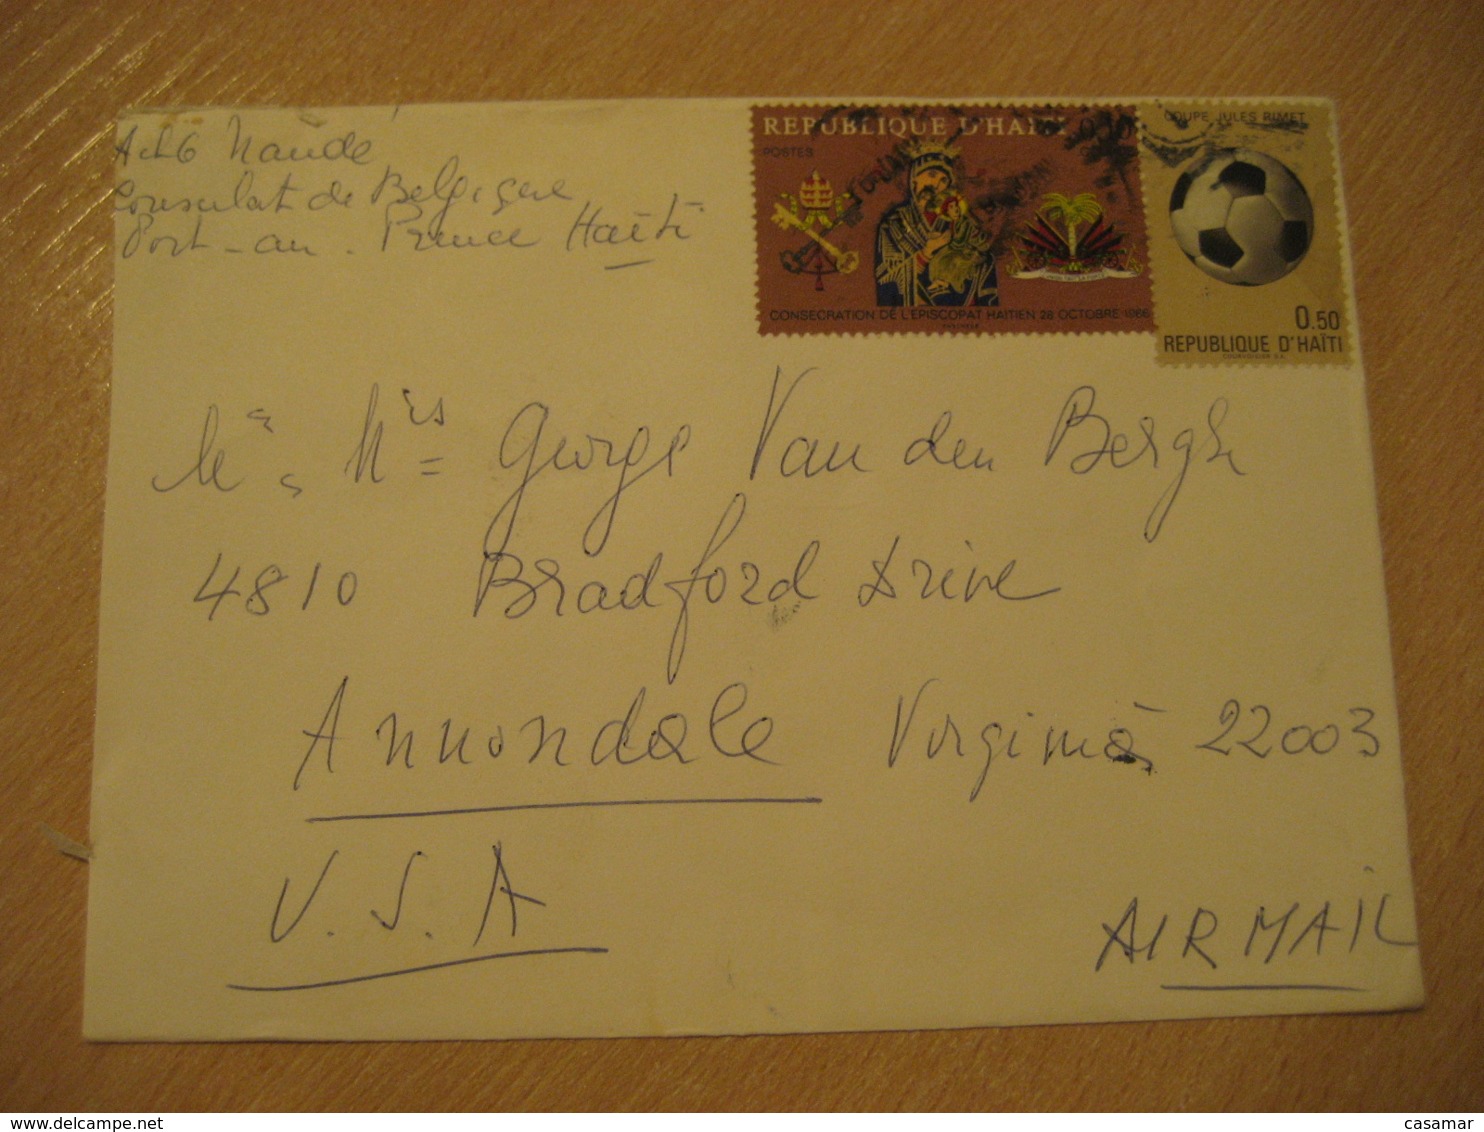 Naudé
Consulat de Belgique
Port-au-Prince Haïti
REPUBLIQUE D'HAITI 0.10
POSTES
CONSECRATION DE L'EPISCOPAT HAITIEN 28 OCTOBRE 1966
COUPE JULES RIMET
0.50
REPUBLIQUE D'HAÏTI
COURVOISIER S.A.
Mr. Mrs George Van den Bergh
4810 Bradford Drive
Annondale Virginia 22003
U.S.A
AIR MAIL
casamar
www.delcampe.net